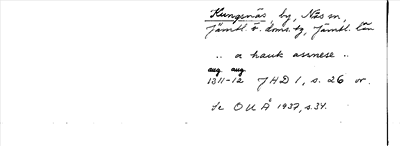 Kungsnäs, by, Näs sn,
Jämtl. v. doms. tg, Jämtl. län
.. a hauk assnese ..
aug aug
1311-12 JHD 1, s. 26 or.
Se OUÅ 1937, s. 34.